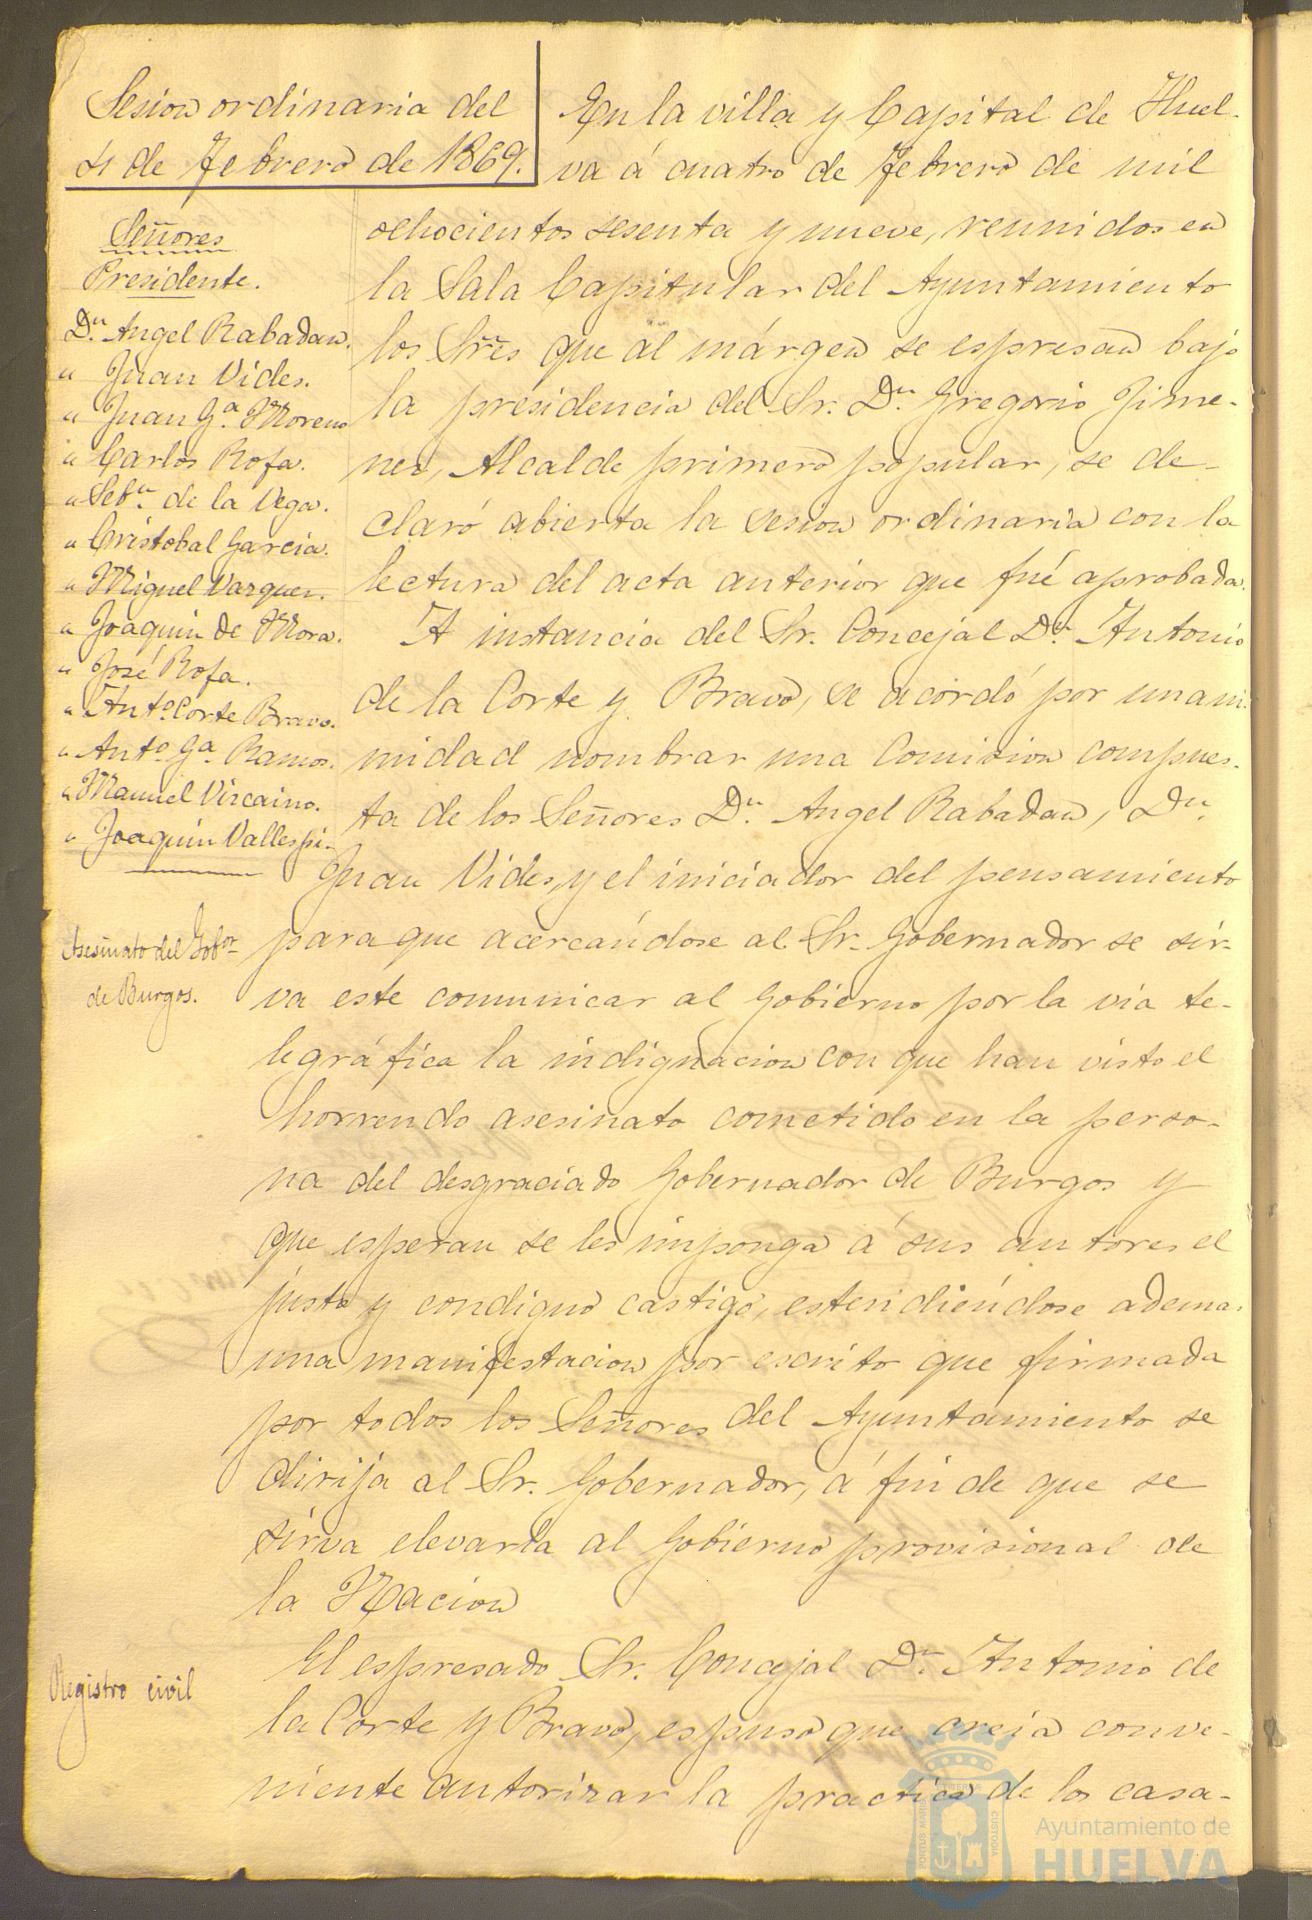 Sesion ordinaria del
4 de Febrero de 1869.
Señores
Presidente.
Dn. Angel Rabadan.
" Juan Vides.
" Juan Ga. Moreno
" Carlos Rofa.
" Sebn. de la Vega.
" Cristobal Garcia.
" Miguel Vazquez.
" Joaquin de Mora.
" José Rofa.
" Anto. Corte Bravo.
" Anto. Ga. Ramos.
" Manuel Vizcaino.
" Joaquin Vallespi.
Asesinato del Gobor
de Burgos.
Registro civil
En la villa y Capital de Huel-
va á cuatro de Febrero de mil
ochocientos sesenta y nueve, reunidos en
la Sala Capitular del Ayuntamiento
los Sres que al márgen se espresan bajo
la presidencia del Sr. Dn. Gregorio Jime-
nez, Alcalde primero popular, se de-
claró abierta la sesion ordinaria con la
lectura del acta anterior que fué aprobada.
A instancia del Sr. Concejal Dn. Antonio
de la Corte y Bravo, se acordó por unani-
midad nombrar una Comision compues-
ta de los Señores Dn. Angel Rabadan, Dn.
Juan Vides, y el iniciador del pensamiento
para que acercándose al Sr. Gobernador se sir-
va este comunicar al Gobierno por la via te-
legráfica la indignacion con que han visto el
horrendo asesinato cometido en la perso-
na del desgraciado Gobernador de Burgos y
que esperan se les imponga á sus autores el
justo y condigno castigo, estendiéndose ademas
una manifestacion por escrito que firmada
por todos los Señores del Ayuntamiento se
dirija al Sr. Gobernador, á fin de que se
sirva elevarla al Gobierno provisional de
la Nacion
El espresado Sr. Concejal Dn. Antonio de
la Corte y Bravo, espuso que creia conve-
niente autorizar la practica de los casa-
Ayuntamiento de
HUELVA